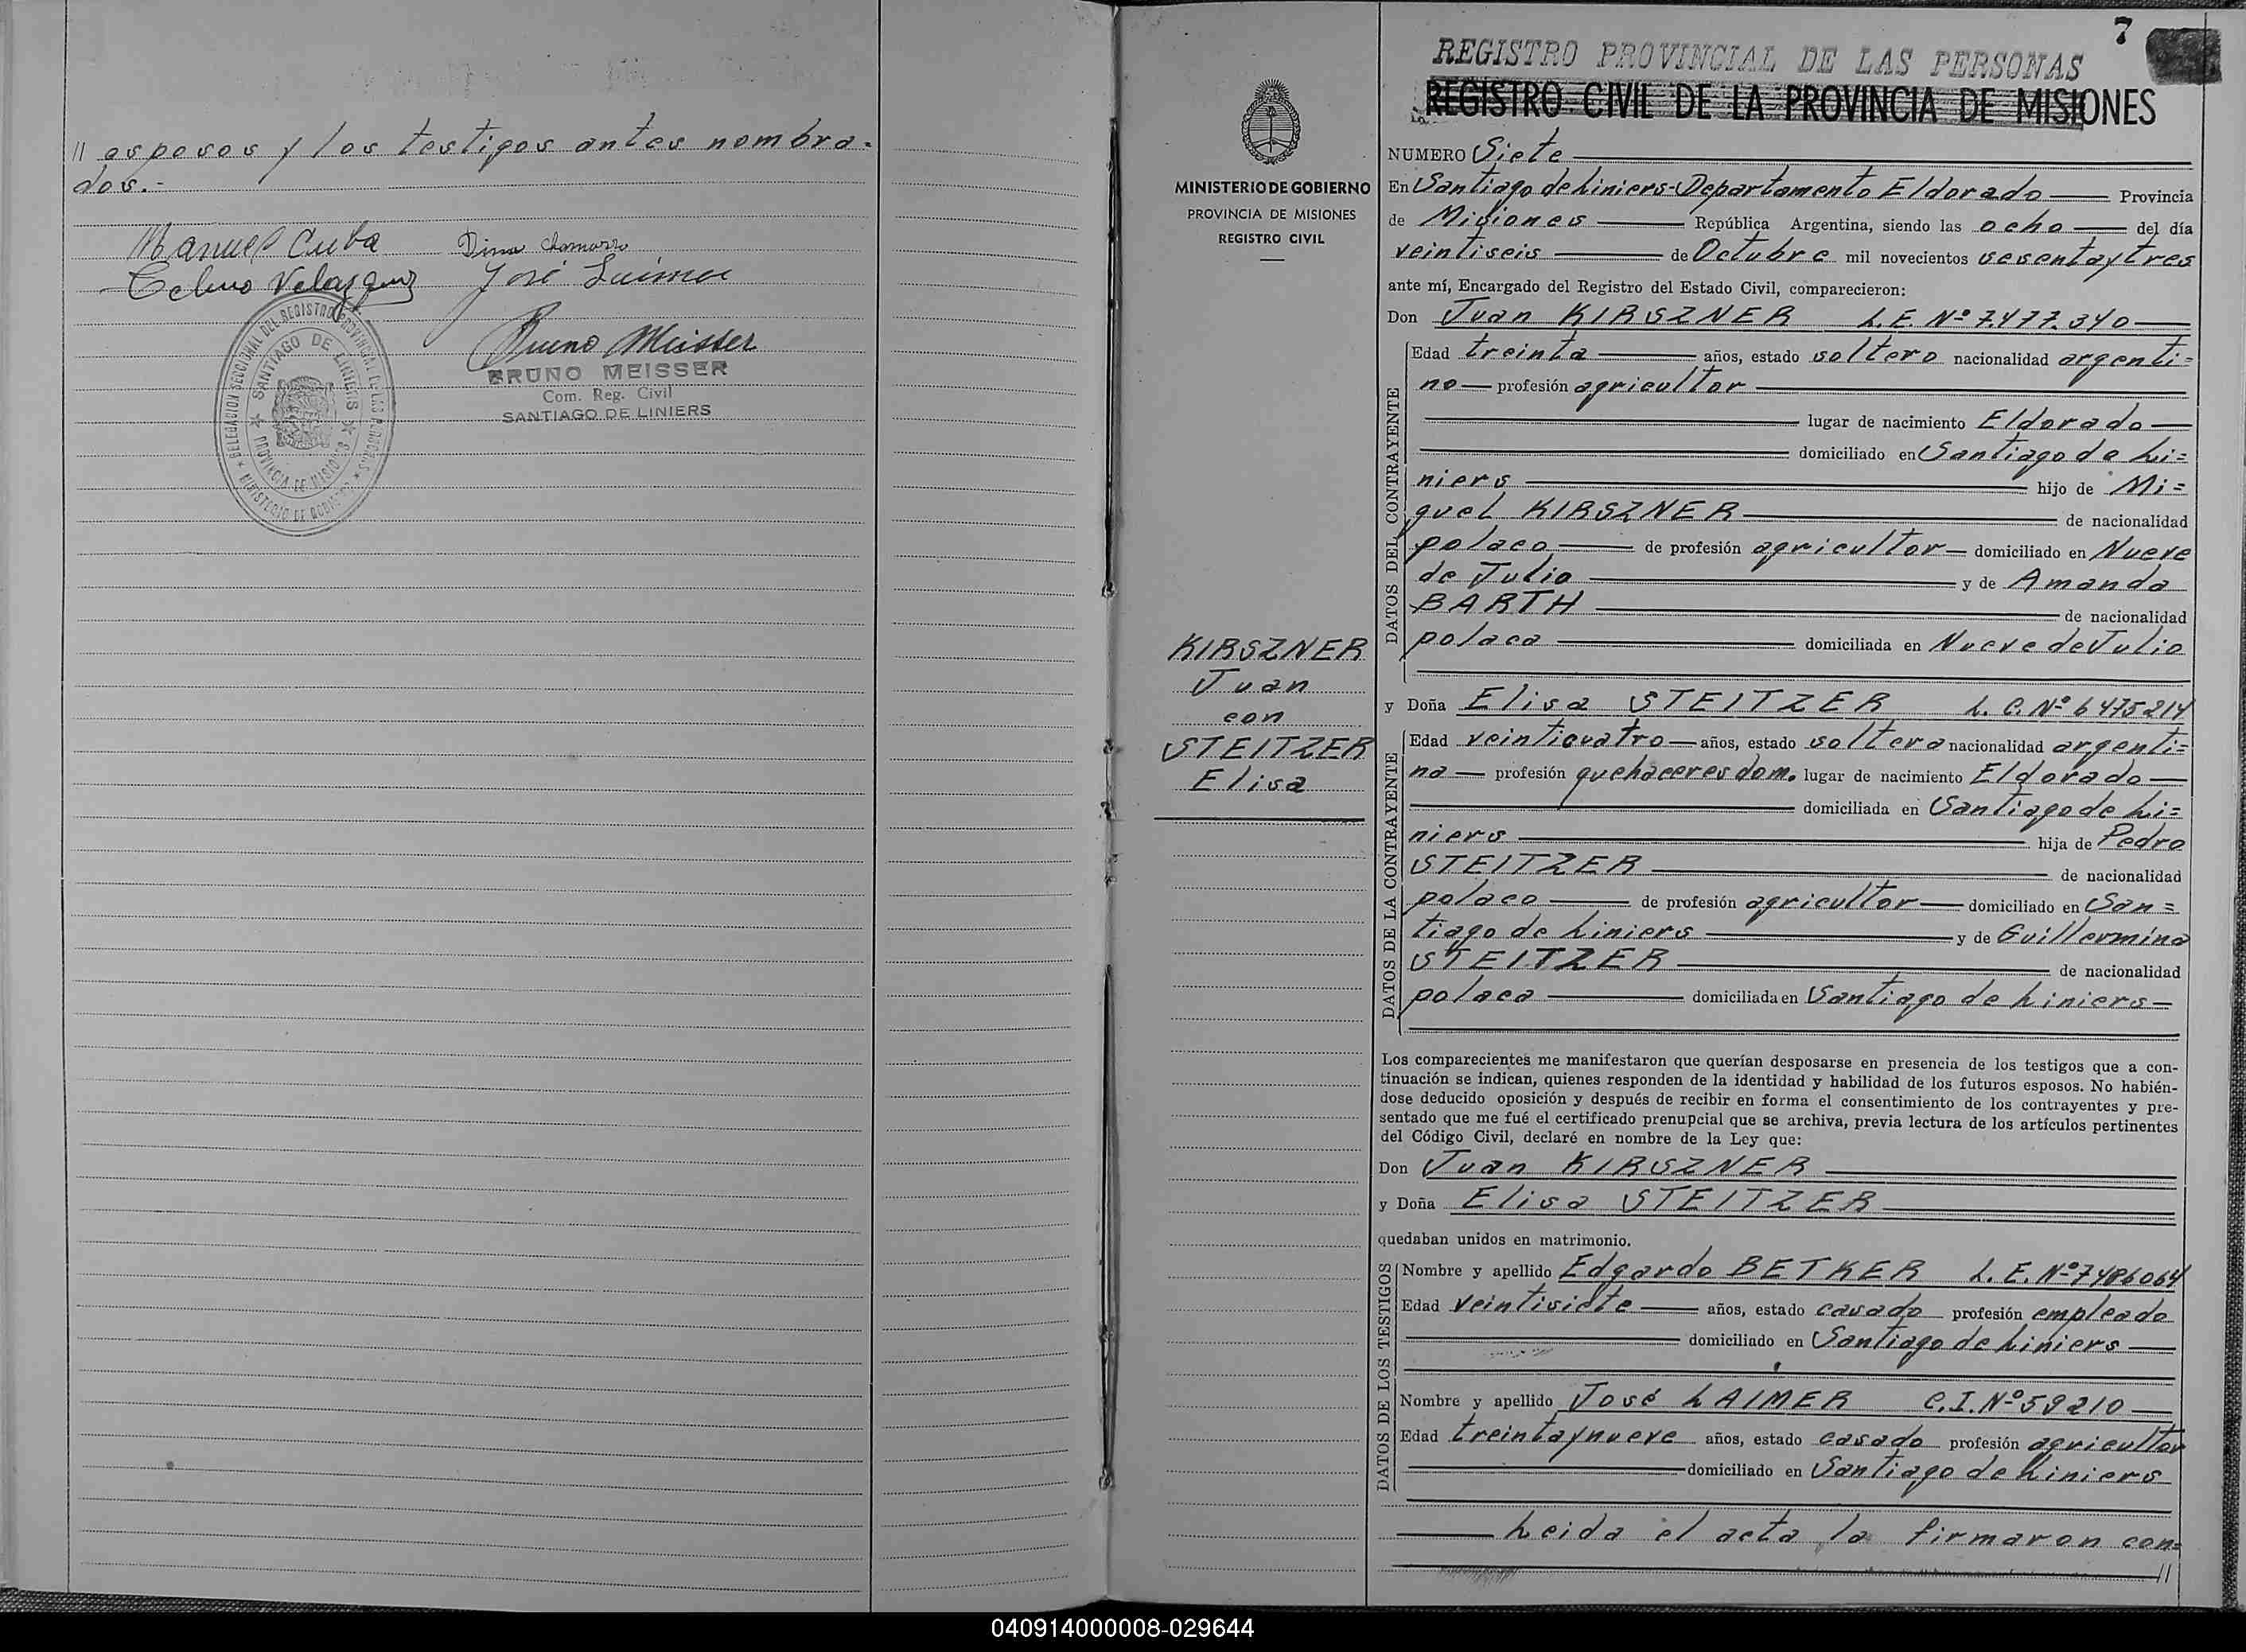 // esposos y los testigos antes nombra=
dos.-
Manuel Cuba
Dina Chamorro
Celino Velazquez
José Laimer
Bruno Meisser
BRUNO MEISSER
Com. Reg. Civil
SANTIAGO DE LINIERS
DELEGACION SECCIONAL DEL REGISTRO PROVINCIAL DE LAS PERSONAS
SANTIAGO DE LINIERS
PROVINCIA DE MISIONES
MINISTERIO DE GOBIERNO
7
REGISTRO PROVINCIAL DE LAS PERSONAS
REGISTRO CIVIL DE LA PROVINCIA DE MISIONES
MINISTERIO DE GOBIERNO
PROVINCIA DE MISIONES
REGISTRO CIVIL
KIRSZNER
Juan
con
STEITZER
Elisa
NUMERO Siete
En Santiago de Liniers-Departamento Eldorado Provincia
de Misiones República Argentina, siendo las ocho del día
veintiseis de Octubre mil novecientos sesenta y tres
ante mí, Encargado del Registro del Estado Civil, comparecieron:
Don Juan KIRSZNER L.E. Nº 7.477.340
DATOS DEL CONTRAYENTE
Edad treinta años, estado soltero nacionalidad argenti=
no profesión agricultor
lugar de nacimiento Eldorado
domiciliado en Santiago de Li=
niers hijo de Mi=
guel KIRSZNER de nacionalidad
polaco de profesión agricultor domiciliado en Nueve
de Julio y de Amanda
BARTH de nacionalidad
polaca domiciliada en Nueve de Julio
y Doña Elisa STEITZER L.C. Nº 6475214
DATOS DE LA CONTRAYENTE
Edad veinticuatro años, estado soltera nacionalidad argenti=
na profesión quehaceres dom. lugar de nacimiento Eldorado
domiciliada en Santiago de Li=
niers hija de Pedro
STEITZER de nacionalidad
polaco de profesión agricultor domiciliado en San=
tiago de Liniers y de Guillermina
STEITZER de nacionalidad
polaca domiciliada en Santiago de Liniers
Los comparecientes me manifestaron que querían desposarse en presencia de los testigos que a con-
tinuación se indican, quienes responden de la identidad y habilidad de los futuros esposos. No habién-
dose deducido oposición y después de recibir en forma el consentimiento de los contrayentes y pre-
sentado que me fué el certificado prenupcial que se archiva, previa lectura de los artículos pertinentes
del Código Civil, declaré en nombre de la Ley que:
Don Juan KIRSZNER
y Doña Elisa STEITZER
quedaban unidos en matrimonio.
DATOS DE LOS TESTIGOS
Nombre y apellido Edgardo BETKER L.E. Nº 7486064
Edad veintisiete años, estado casado profesión empleado
domiciliado en Santiago de Liniers
Nombre y apellido José LAIMER C.I. Nº 59210
Edad treinta y nueve años, estado casado profesión agricultor
domiciliado en Santiago de Liniers
Leida el acta la firmaron con=
//
040914000008-029644